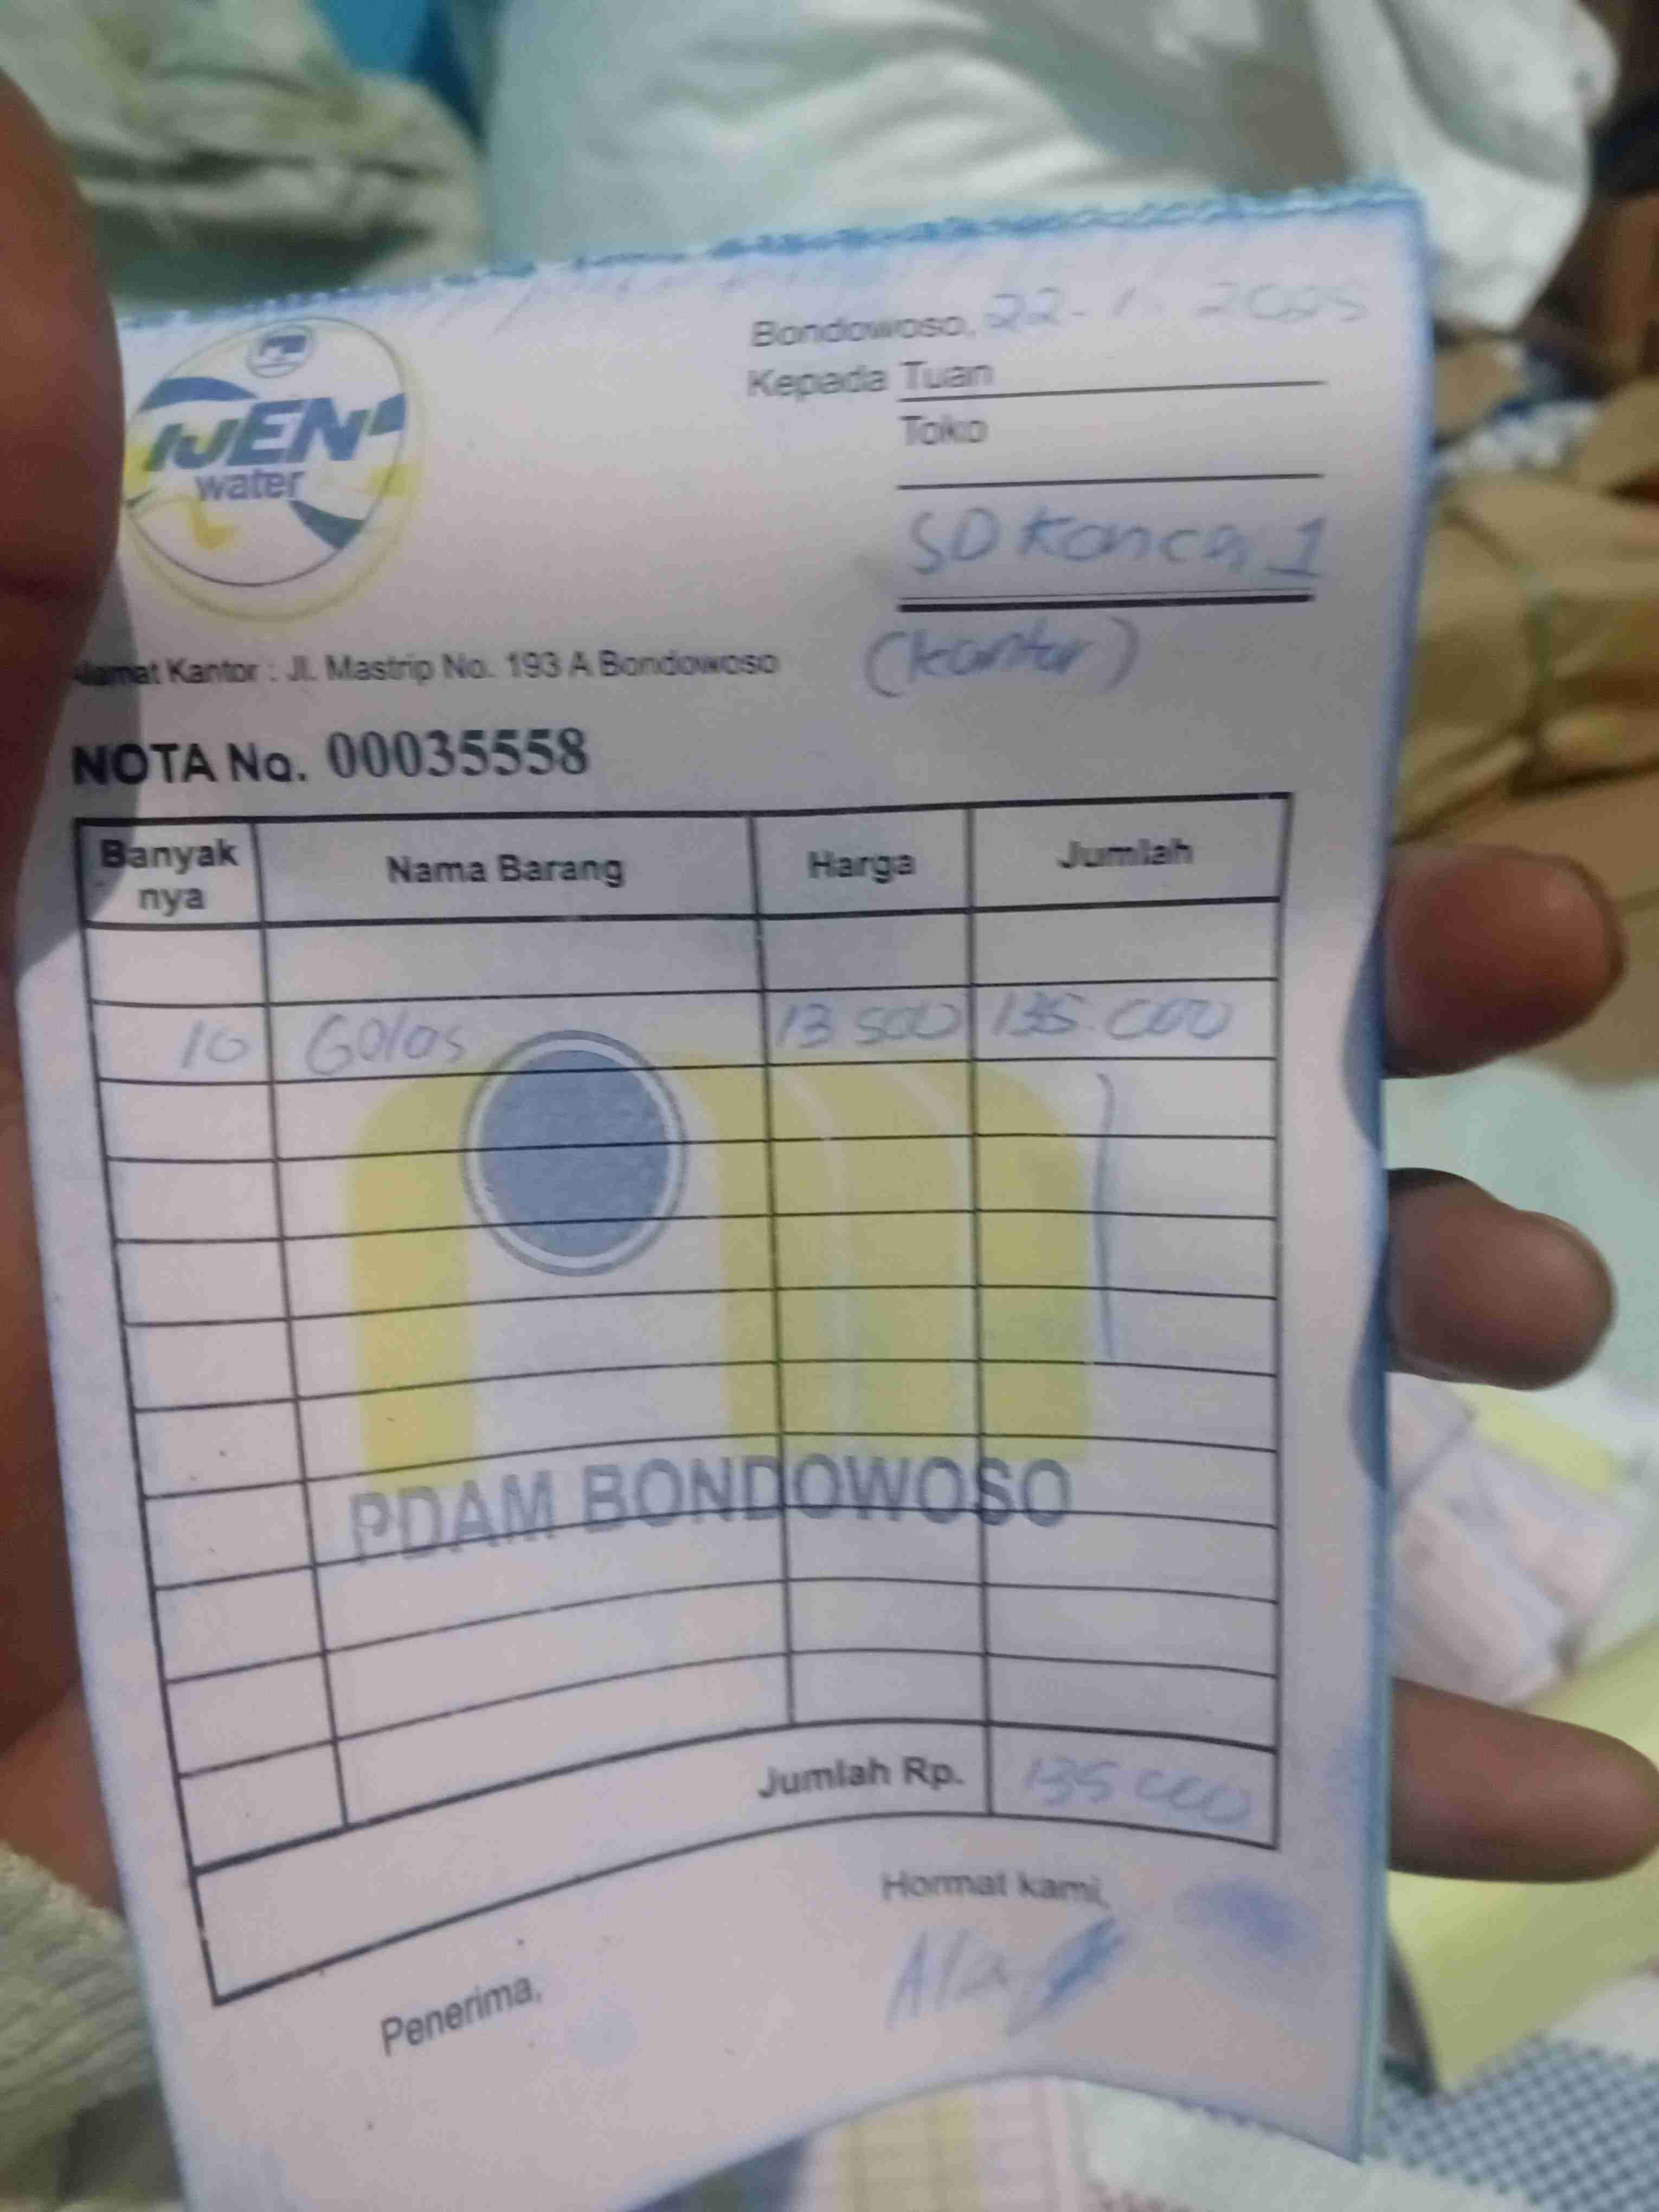 IJEN
water
Bondowoso, 22-1-2025
Kepada Tuan
Toko
SD Koncer 1
(kantor)
Alamat Kantor : Jl. Mastrip No. 193 A Bondowoso
NOTA No. 00035558
Banyak nya Nama Barang Harga Jumlah
10 Gelas 13 500 135 000
PDAM BONDOWOSO
Jumlah Rp. 135 000
Hormat kami,
Penerima,